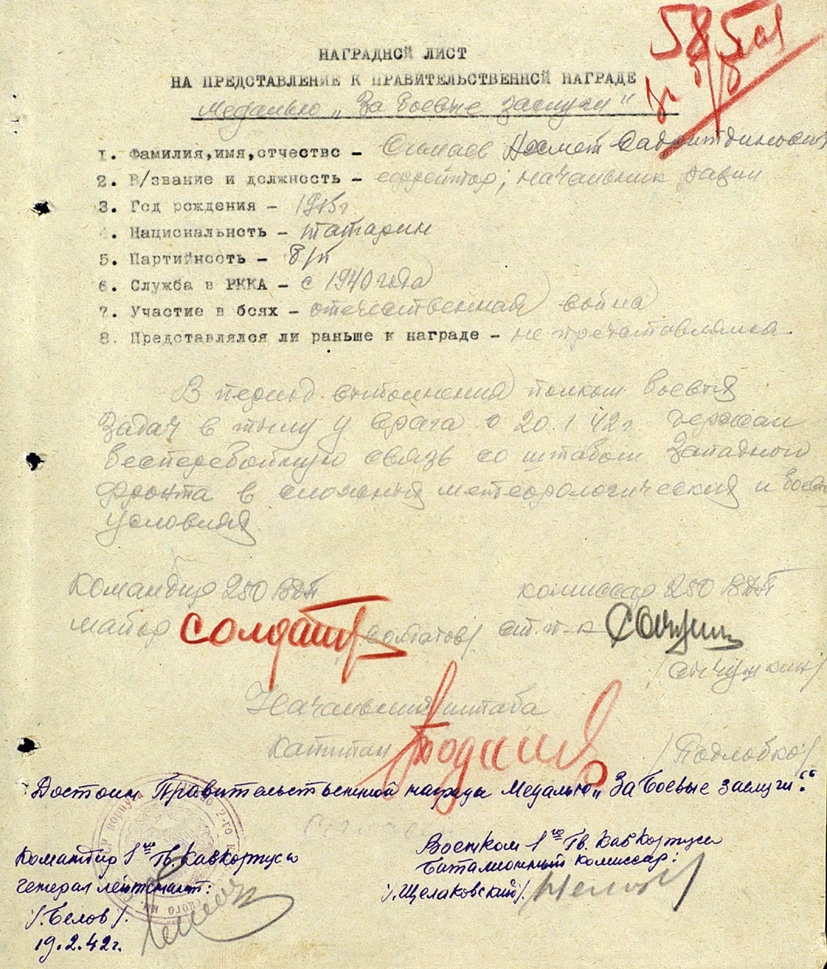 НАГРАДНОЙ ЛИСТ
НА ПРЕДСТАВЛЕНИЕ К ПРАВИТЕЛЬСТВЕННОЙ НАГРАДЕ
Медалью „За боевые заслуги"
1. Фамилия,имя,отчество -
2. В/звание и должность - ефрейтор, начальник рации
3. Год рождения - 1915г
4. Национальнсть - татарин
5. Партийность - б/п
6. Служба в РККА - с 1940 года
7. Участие в боях - отечественная война
8. Представлялся ли раньше к награде - не представлялся
В период выполнения полком боевых
задач в тылу у врага с 20.1.42г. держал
бесперебойную связь со штабом Западного
фронта в сложных метеорологических и боев
условиях.
Командир 250 ВДП
комиссар 250 ВДП
майор Солдатов /Солдатов/
ст. п-к
Начальник штаба
капитан
Достоин Правительственной награды Медалью „За боевые заслуги."
Командир 1го Гв. Кавкорпуса
генерал лейтенант:
/.Белов/.
19.2.42г.
Военком 1го Гв. КавКорпуса
Баталионный комиссар:
/.Щелаковский/.